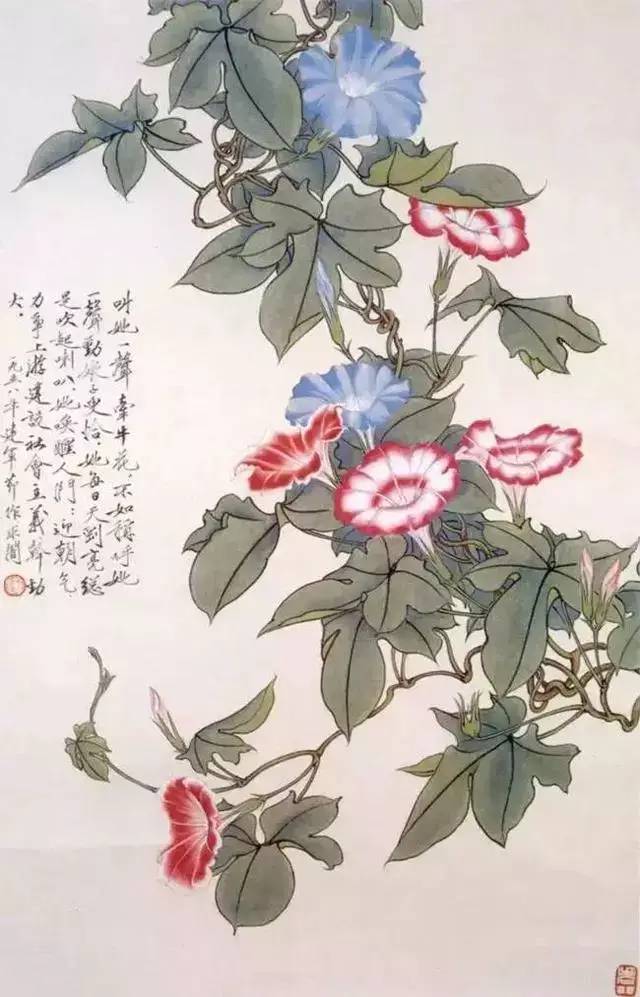 叫她一聲牽牛花,不如稱呼她
一聲勤娘子更恰,她每日天剛亮總
是吹起喇叭,她喚醒人們:迎朝气
力爭上游建設社會主義幹劲
大.
一九五八年建軍節作 非闇